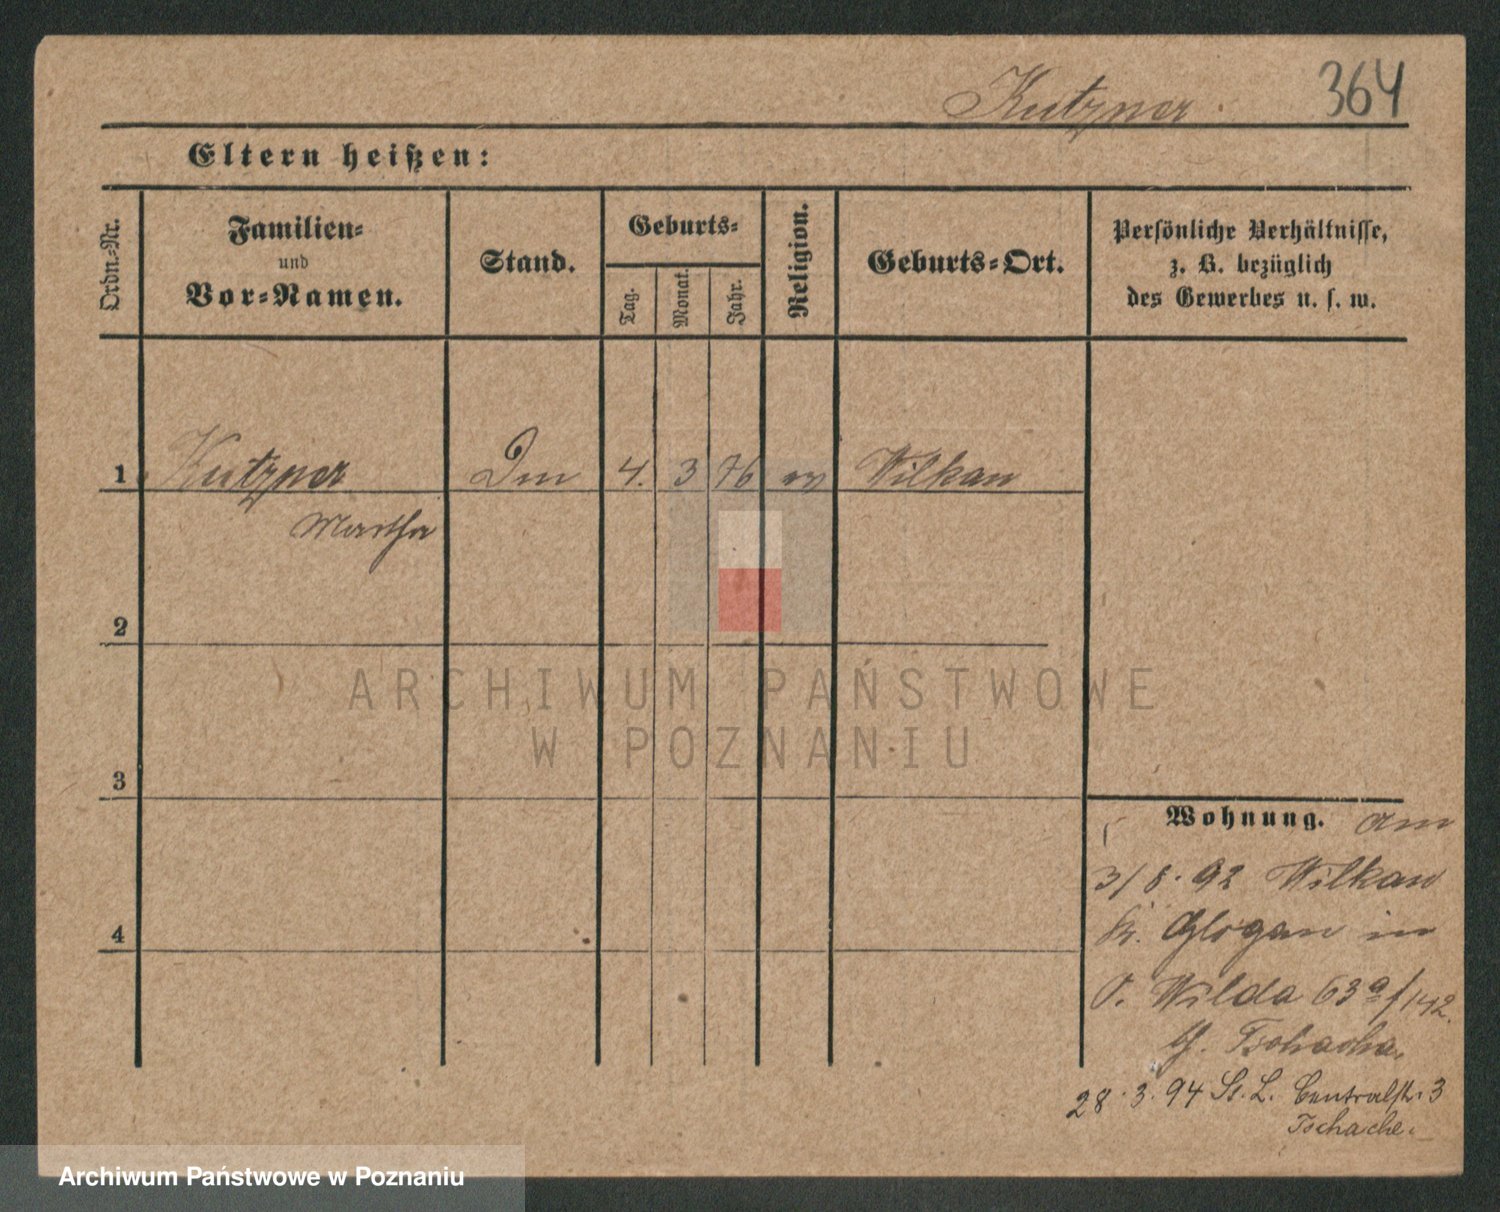 Kutzner. 364
Eltern heißen:
Ordn.-Nr.
Familien-
und
Vor-Namen.
Stand.
Geburts-
Tag.
Monat.
Jahr.
Religion.
Geburts-Ort.
Persönliche Verhältnisse,
z. B. bezüglich
des Gewerbes u. s. w.
1 Kutzner Dm 4. 3 76 ev Wilkau
Martha
2
ARCHIWUM PAŃSTWOWE
W POZNANIU
3
Wohnung. am
3/8. 92 Wilkau
Kr. Glogau in
O. Wilda 63a/142.
b/. Tschacha.
4
28.3.94 St. L. Centralstr. 3
Tschache.
Archiwum Państwowe w Poznaniu